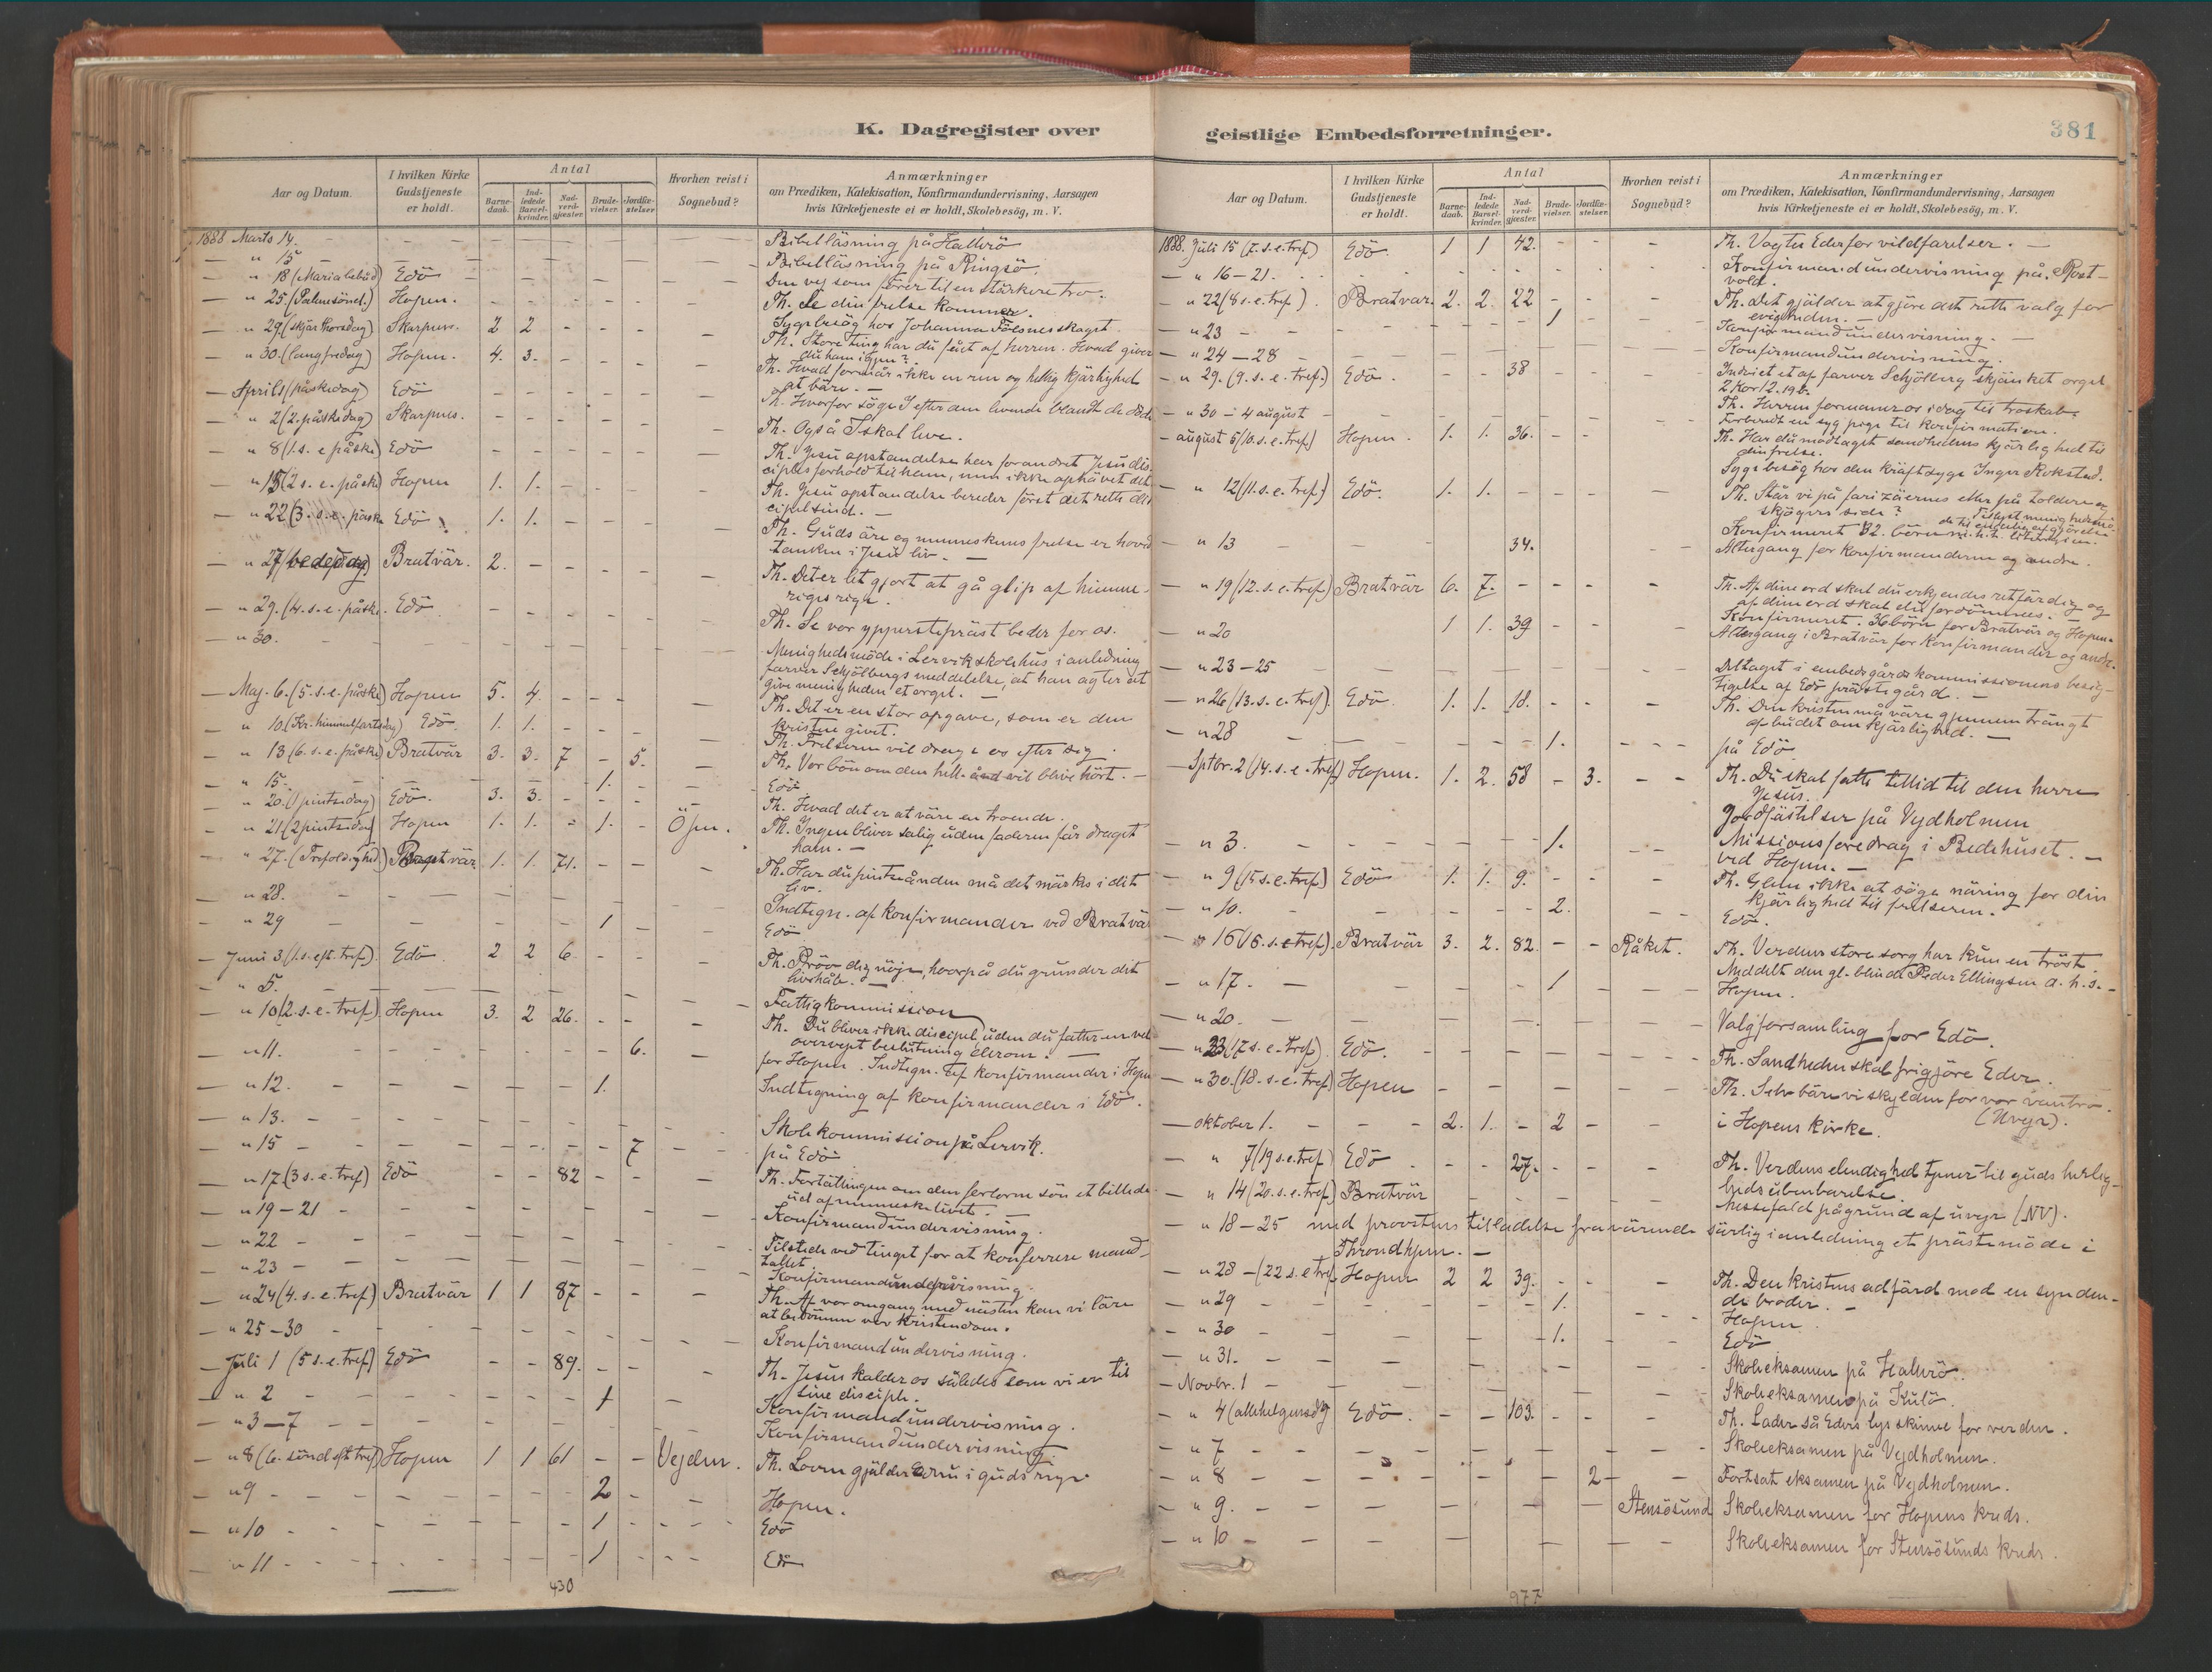 K. Dagregister over
Aar og Datum.
I hvilken Kirke Gudstjeneste er holdt.
Antal
Barnedaab.
Indledede Barselkvinder.
Nadverdgjæster.
Brudevielser.
Jordfæstelser.
Hvorhen reist i Sognebud?
Anmærkninger
om Prædiken, Katekisation, Konfirmandundervisning, Aarsagen
hvis Kirketjeneste ei er holdt, Skolebesög, m. V.
1888 Marts 14. Bibelläsning på Hallerö
— " 15 Bibelläsning på Ringsö.
— " 18 (Maria bebud) Edö Den vej som förer til en stärkere tro.
— " 25. (Palmesönd.) Hopen. Th. Se din frelse kommer.
— " 29 (skjär thorsdag) Skarpnes. 2 2 Sygebesög hos Johanna
— " 30. (langfredag) Hopen. 4. 3. Th. Store ting har du fået af herren. Hvad giver
du ham igjen?
— April 1 (påskedag) Edö Th. Hvad formår ikke en ren og hellig kjärlighed
at bäre. —
— " 2 (2. påskedag) Skarpnes. Th. Hvorfor söge I efter den levende blandt de döde
— " 8 (1. s. e påske) Edö Th. Også I skal leve.
— " 15 (2 s. e. påske) Hopen 1. 1. Th. Jesu opstandelse har forandret Jesu disciples
forhold til ham, men ikke ophävet det
— " 22 (3. s. e. påske Edö 1. 1. Th. Jesu opstandelse bereder först det rette disci
cipelsind. —
— " 27 (bededag) Bratvär. 2. Th. Guds äre og menneskens frelse er hoved
tanken i Jesu liv. —
— " 29. (4. s. e. påske. Edö Th. Det er let gjort at gå glip af himme-
riges rige.
— " 30. Th. Se vor ypperstepräst beder for os.
Menighedsmöde i Lervik skolehus i anledning
farver Schjölbergs meddelelse, at han agter at
give menigheden et orgel. —
— Maj. 6. (5. s. e. påske) Hopen 5. 4. Th. Det er en stor opgave, som er den
kristne givet.
" 10. (Kr. himmelfartsdag) Edö. 1. 1. Th. Frelseren vil drage os efter sig.
" 13 (6. s. e. påske) Bratvär 3. 3. 7 — 5. Th. Vor bön om den hell. ånd vil blive hört. —
" 15. 1. Edö
" 20. (1 pintsedag) Edö. 3. 3. Th. Hvad det er at väre en troende.
" 21 (2 pintsedag) Hopen 1. 1. 1. Öjen. Th. Ingen bliver salig uden faderen får draget
ham. —
" 27. (Trefoldighed) Bratvär 1. 1. 71. Th. Har du pintseånden må det märkes i dit
liv.
— " 28. Indtegn. af konfirmander ved Bratvär
— " 29 1 Edö
— Juni 3 (1. s. eft. tref.) Edö 2 2 6 Th. Pröv dig nöje, hvorpå du grunder dit
livshåb. —
" 5. Fattigkommission
— " 10 (2. s. e. tref.) Hopen 3. 2 26. Th. Du bliver ikke discipel, uden du fatter en vel
overvejet beslutning derom. —
— " 11. 6. for Hopen. Indtegn. af konfirmander i Hopen
— " 12. 1. Indtegning af konfirmander i Edö.
— " 13. Skolekommission på Lervik.
— " 15 7 på Edö
— " 17. (3 s. e. tref) Edö 82 Th. Fortällingen om den fortorne sön et billede
ud af menneskelivet. —
— " 19–21 Konfirmandundervisning.
— " 22 Tilstede ved tinget for at konferere mand-
tallet.
— " 23 Konfirmandundervisning.
— " 24 (4. s. e. tref) Bratvär 1 1 87 Th. Af vor omgang med nästen kan vi läre
at bedömme vor kristendom.
— " 25–30 Konfirmandundervisning.
— Juli 1 (5 s. e. tref) Edö 89. Th. Jesus kalder os således som vi er til
sine disciple.
— " 2 1 Konfirmandundervisning.
— " 3–7 Konfirmandundervisning
— " 8 (6. sönd eft tref) Hopen 1 1 61 Vejden. Th. Loven gjälder endnu i guds rige.
— " 9 2 Hopen.
— " 10 1 Edö
— " 11 1 Edö
430
geistlige Embedsforretninger.
381
Aar og Datum.
I hvilken Kirke Gudstjeneste er holdt.
Antal
Barnedaab.
Indledede Barselkvinder.
Nadverdgjæster.
Brudevielser.
Jordfæstelser.
Hvorhen reist i Sognebud?
Anmærkninger
om Prædiken, Katekisation, Konfirmandundervisning, Aarsagen
hvis Kirketjeneste ei er holdt, Skolebesög, m. V.
1888. Juli 15 (7. s. e. tref) Edö. 1 1 42. Th. Vogter Eder for vildfarelser. —
— " 16–21. Konfirmandundervisning på Rost-
vold.
— " 22 (8 s. e. tref.) Bratvär. 2. 2. 22 Th. Det gjälder at gjöre det rette valg for
evigheden. —
— " 23 1 Konfirmandundervisning. —
— " 24–28 Konfirmandundervisning.
— " 29. (9. s. e. tref.) Edö. 38 Indviet et af farver Schjölberg skjänket orgel
2 Kor 12. 19b.
— " 30 – 4 august Th. Herren formaner os idag til troskab.
Forberedt en syg pige til konfirmation.
— august 5 (10. s. e. tref) Hopen. 1. 1. 36. Th. Har du modtaget sandhedens kjärlighed til
din frelse.
Sygebesög hos den kräftsyge Inger Rokstad.
— " 12 (11. s. e. tref.) Edö. 1. 1. Th. Står vi på farizäernes eller på tolderes og
skjögers side?
— " 13 34. Konfirmeret 32. börn
Altergang for konfirmanderne og andre.
— " 19 (12. s. e. tref) Bratvär 6. 7. Th. Af dine ord skal du erkjendes retfärdig og
af dine ord skal du fordömmes. —
— " 20 1 1. 39 Konfirmeret. 36 börn for Bratvär og Hopen.
Altergang i Bratvär for konfirmander og andr.
— " 23–25 Deltaget i embedsgårds kommissionens besig-
tigelse af Edö prästegård. —
— " 26 (13. s. e. tref) Edö. 1. 1. 18. Th. Den kristne må väre gjennemträngt
af budet om kjärlighed. —
— " 28 1. på Edö
— Sptbr. 2 (14. s. e. tref) Hopen. 1. 2. 58 — 3. Th. Du skal fatte tillid til den herre
Jesus.
Jordfästelser på Vejdholmen
— " 3. 1. Missionsforedrag i Bedehuset. —
ved Hopen. —
— " 9 (15 s. e. tref) Edö 1. 1. 9. Th. Glem ikke at söge näring for din
kjärlighed til frelseren.
— " 10. 2. Edö.
— " 16 (16. s. e tref). Bratvär 3. 2. 82. Råket. Th. Verdens store sorg har kun en tröst
Meddelt den gl. blinde Peder Ellingsen d. h. s. —
— " 17. 1 Hopen.
— " 20. Valgforsamling for Edö.
— " 23 (17 s. e. tref). Edö. Th. Sandheden skal frigjöre Eder.
— " 30. (18. s. e. tref) Hopen Th. Selv bäre vi skylden for vor vantro.
(Uvejr).
— oktober 1. 2. 1. 2 i Hopens kirke.
— " 7 (19 s. e. tref) Edö 27. Th. Verdens elendighed tjener til guds herlig-
heds åbenbarelse.
— " 14 (20. s. e. tref) Bratvär Messefald på grund af uvejr (NV).
— " 18–25 med provstens tilladelse fraværende särlig i anledning et prästemöde i
Throndhjem. —
— " 28 — (22 s. e tref Hopen 2 2 39. Th. Den kristnes adfärd mod en synden-
de broder. —
— " 29 1. Hopen.
— " 30 1. Edö
— " 31. Skoleeksamen på Hallerö.
— Novbr. 1 Skoleeksamen på Kulö.
— " 4 (allehelgensdg Edö. 103. Th. Lader så Eders lys skinne for verden.
— " 7 Skoleeksamen på Vejdholmen.
— " 8 2 Fortsat eksamen på Vejdholmen.
— " 9. Stensösund Skoleeksamen for Hopens kreds.
— " 10 Skoleeksamen for Stensösunds kreds.
977